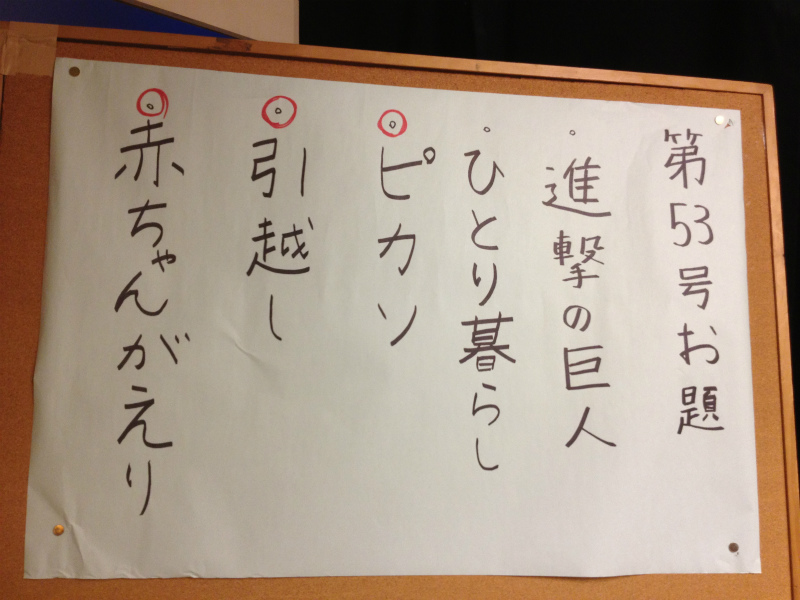 第53号お題
・進撃の巨人
・ひとり暮らし
・ピカソ
・引越し
・赤ちゃんがえり